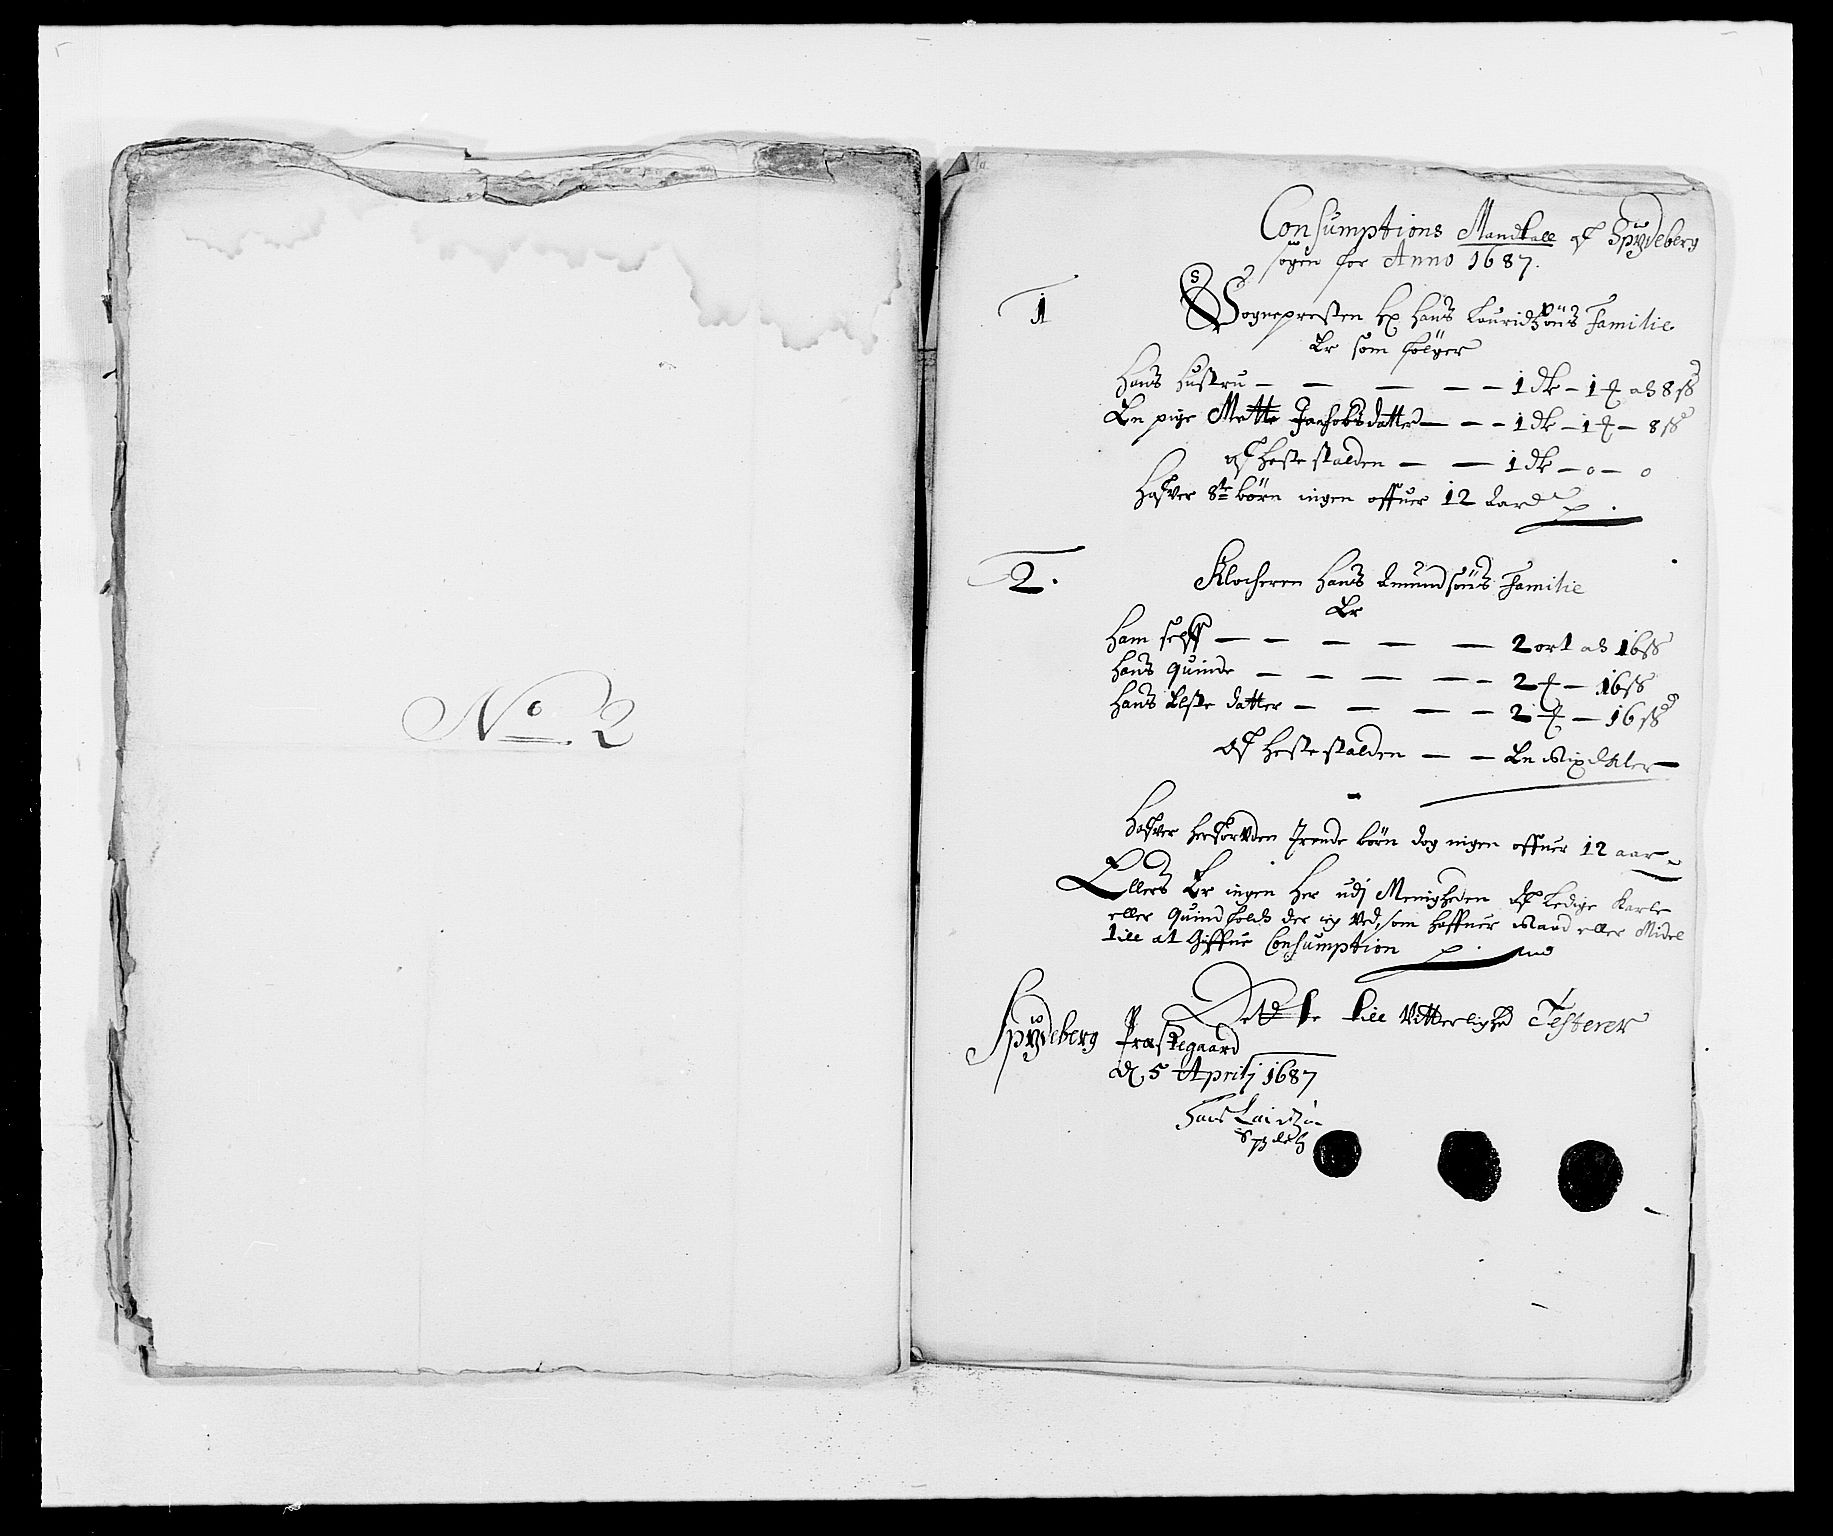 No 2
Consumptions Mandtall af Spydeberg
sogen for Anno 1687.
1
Sognepresten Hr Hans Lauridsøns Familie
Er som følger
Hans Hustru — — — — — 1 dlr — 1 ₰ a 8 ss
En pige Mette Jachobsdatter — — — 1 dlr — 1 ₰ — 8 ss
af hestestalden — — 1 dlr — 0 — 0
Hafver 8te børn ingen offuer 12 Aar
2.
Klocheren Hans Amundsøns Familie
Er
Ham self — — — — — 2 ort a 16 ss
Hans quinde — — — — — 2 ₰ — 16 ss
Hans Elste datter — — — — 2 ₰ — 16 ss
Af hestestalden — — En Rixdaler
Hafver herforuden trende børn dog ingen offuer 12 aar
Ellers Er ingen her udj Menigheden af Ledige Karle
eller Quindfolch der ej Ved, som haffuer Raad eller Midel
till at Giffue Consumption
Dette till Vitterlighed Testerer
Spydeberg Præstegaard
d. 5 Aprilj 1687
Hans Lauridtzøn
Spydeb